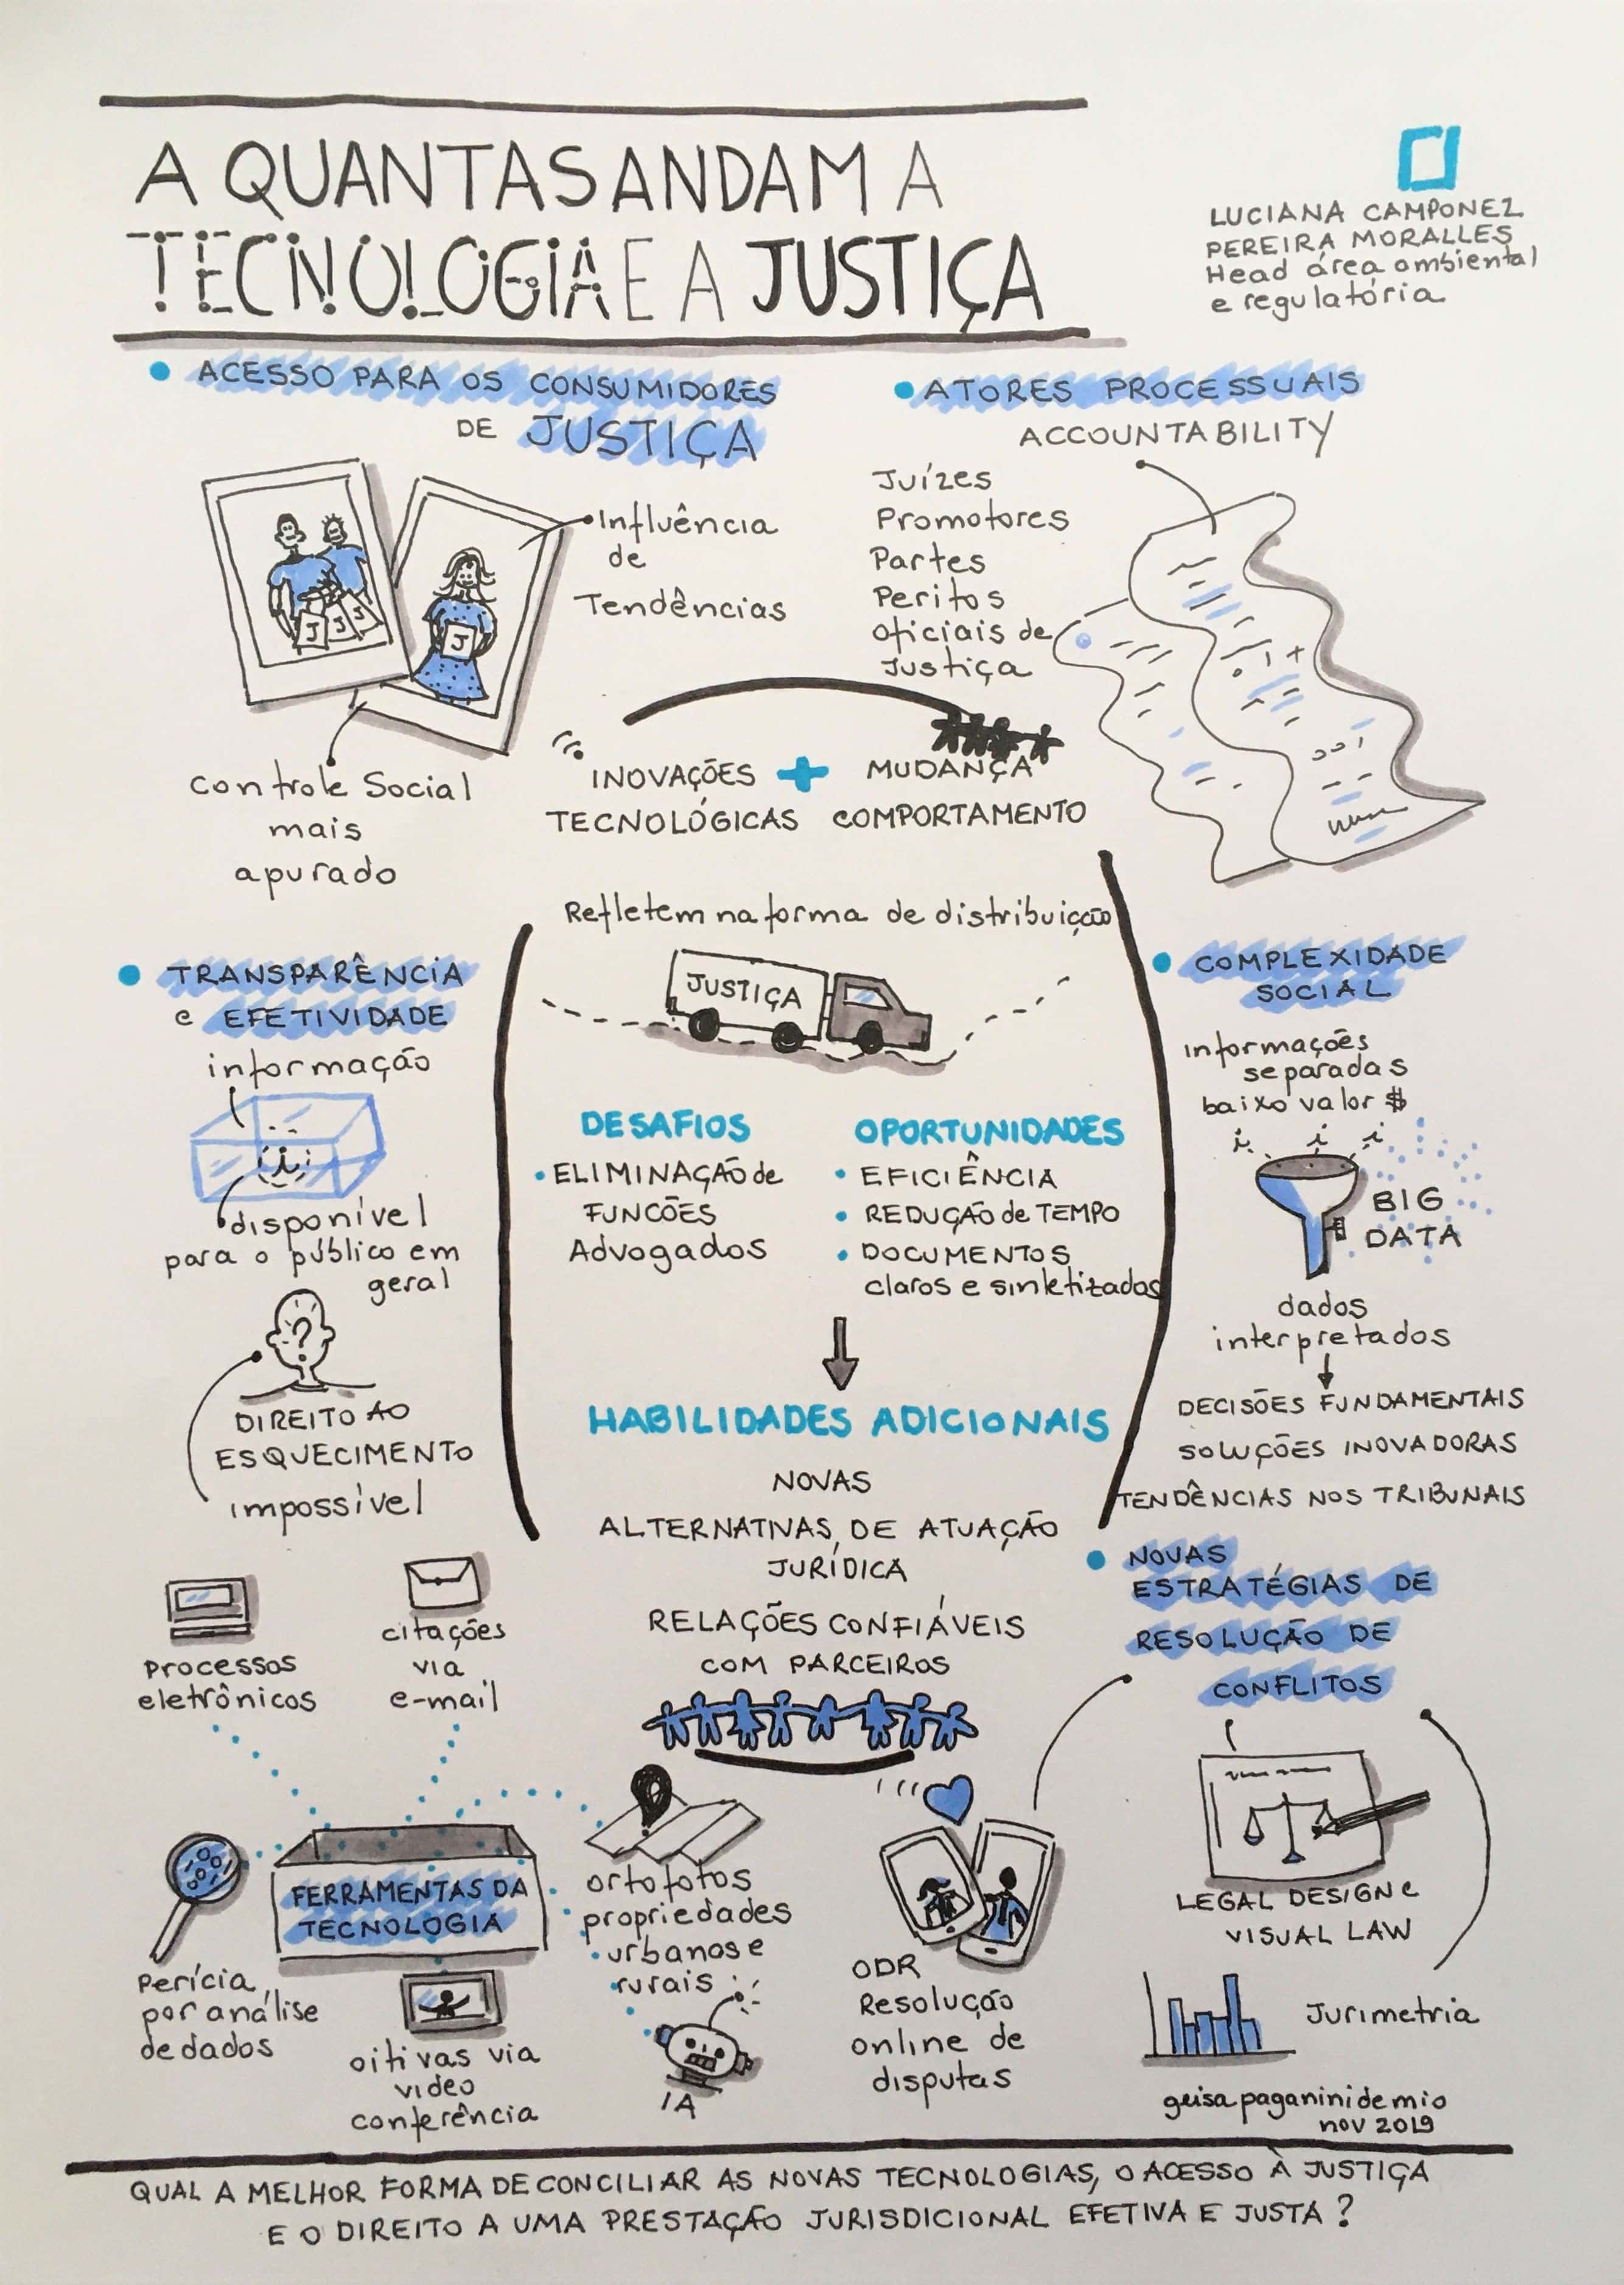 A QUANTAS ANDAM A
TECNOLOGIA E A JUSTIÇA
LUCIANA CAMPONEZ
PEREIRA MORALLES
Head área ambiental
e regulatória
• ACESSO PARA OS CONSUMIDORES
DE JUSTIÇA
J J J
J
Influência
de
Tendências
Controle Social
mais
apurado
• ATORES PROCESSUAIS
ACCOUNTABILITY
Juízes
Promotores
Partes
Peritos
Oficiais de
Justiça
INOVAÇÕES + MUDANÇA
TECNOLÓGICAS COMPORTAMENTO
Refletem na forma de distribuição
JUSTIÇA
• TRANSPARÊNCIA
e EFETIVIDADE
informação
i
disponível
para o público em
geral
?
DIREITO AO
ESQUECIMENTO
impossível
DESAFIOS
• ELIMINAÇÃO de
FUNCÕES
Advogados
OPORTUNIDADES
• EFICIÊNCIA
• REDUÇÃO de TEMPO
• DOCUMENTOS
claros e sintetizados
HABILIDADES ADICIONAIS
NOVAS
ALTERNATIVAS DE ATUAÇÃO
JURÍDICA
RELAÇÕES CONFIÁVEIS
COM PARCEIROS
• COMPLEXIDADE
SOCIAL
informações
separadas
baixo valor $
i i i
BIG
DATA
dados
interpretados
DECISÕES FUNDAMENTAIS
SOLUÇÕES INOVADORAS
TENDÊNCIAS NOS TRIBUNAIS
• NOVAS
ESTRATÉGIAS DE
RESOLUÇÃO DE
CONFLITOS
LEGAL DESIGN e
VISUAL LAW
Jurimetria
ODR
Resolução
online de
disputas
Processos
eletrônicos
citações
via
e-mail
FERRAMENTAS DA
TECNOLOGIA
Perícia
por análise
de dados
oitivas via
video
conferência
ortofotos
propriedades
urbanas e
rurais
IA
geisa paganini de mio
nov 2019
QUAL A MELHOR FORMA DE CONCILIAR AS NOVAS TECNOLOGIAS, O ACESSO À JUSTIÇA
E O DIREITO A UMA PRESTAÇÃO JURISDICIONAL EFETIVA E JUSTA ?